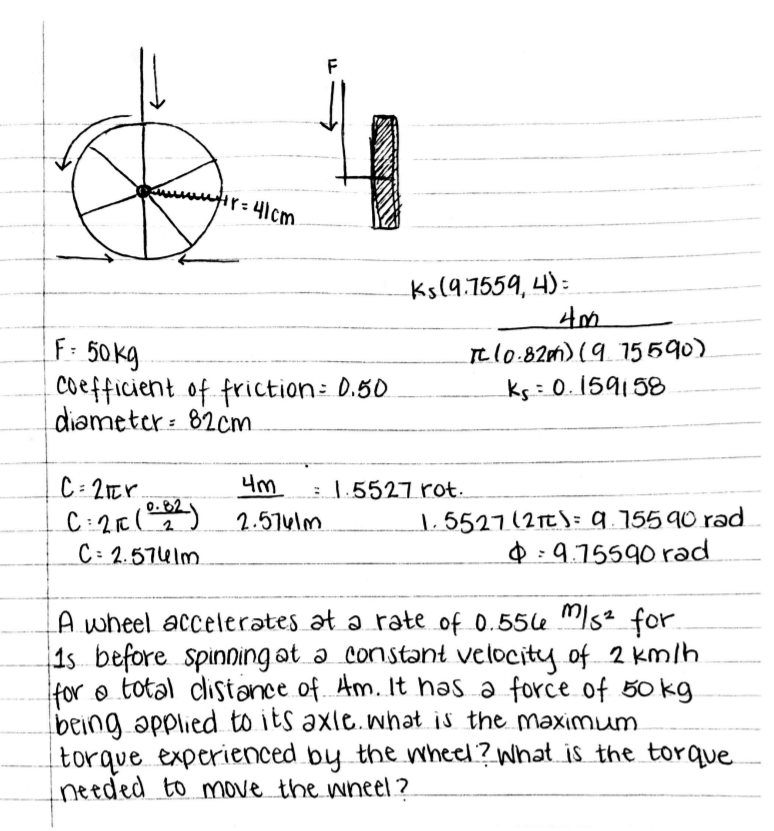 F
r = 41cm
Ks(9.7559, 4) =
4m
π(0.82m)(9.75590)
Ks = 0.159158
F = 50kg
coefficient of friction = 0.50
diameter = 82cm
C = 2πr
4m
= 1.5527 rot.
C = 2π(0.82/2)
2.5761m
1.5527(2π) = 9.75590 rad
C = 2.5761m
Φ = 9.75590 rad
A wheel accelerates at a rate of 0.556 m/s² for
1s before spinning at a constant velocity of 2 km/h
for a total distance of 4m. It has a force of 50 kg
being applied to its axle. what is the maximum
torque experienced by the wheel? What is the torque
needed to move the wheel?